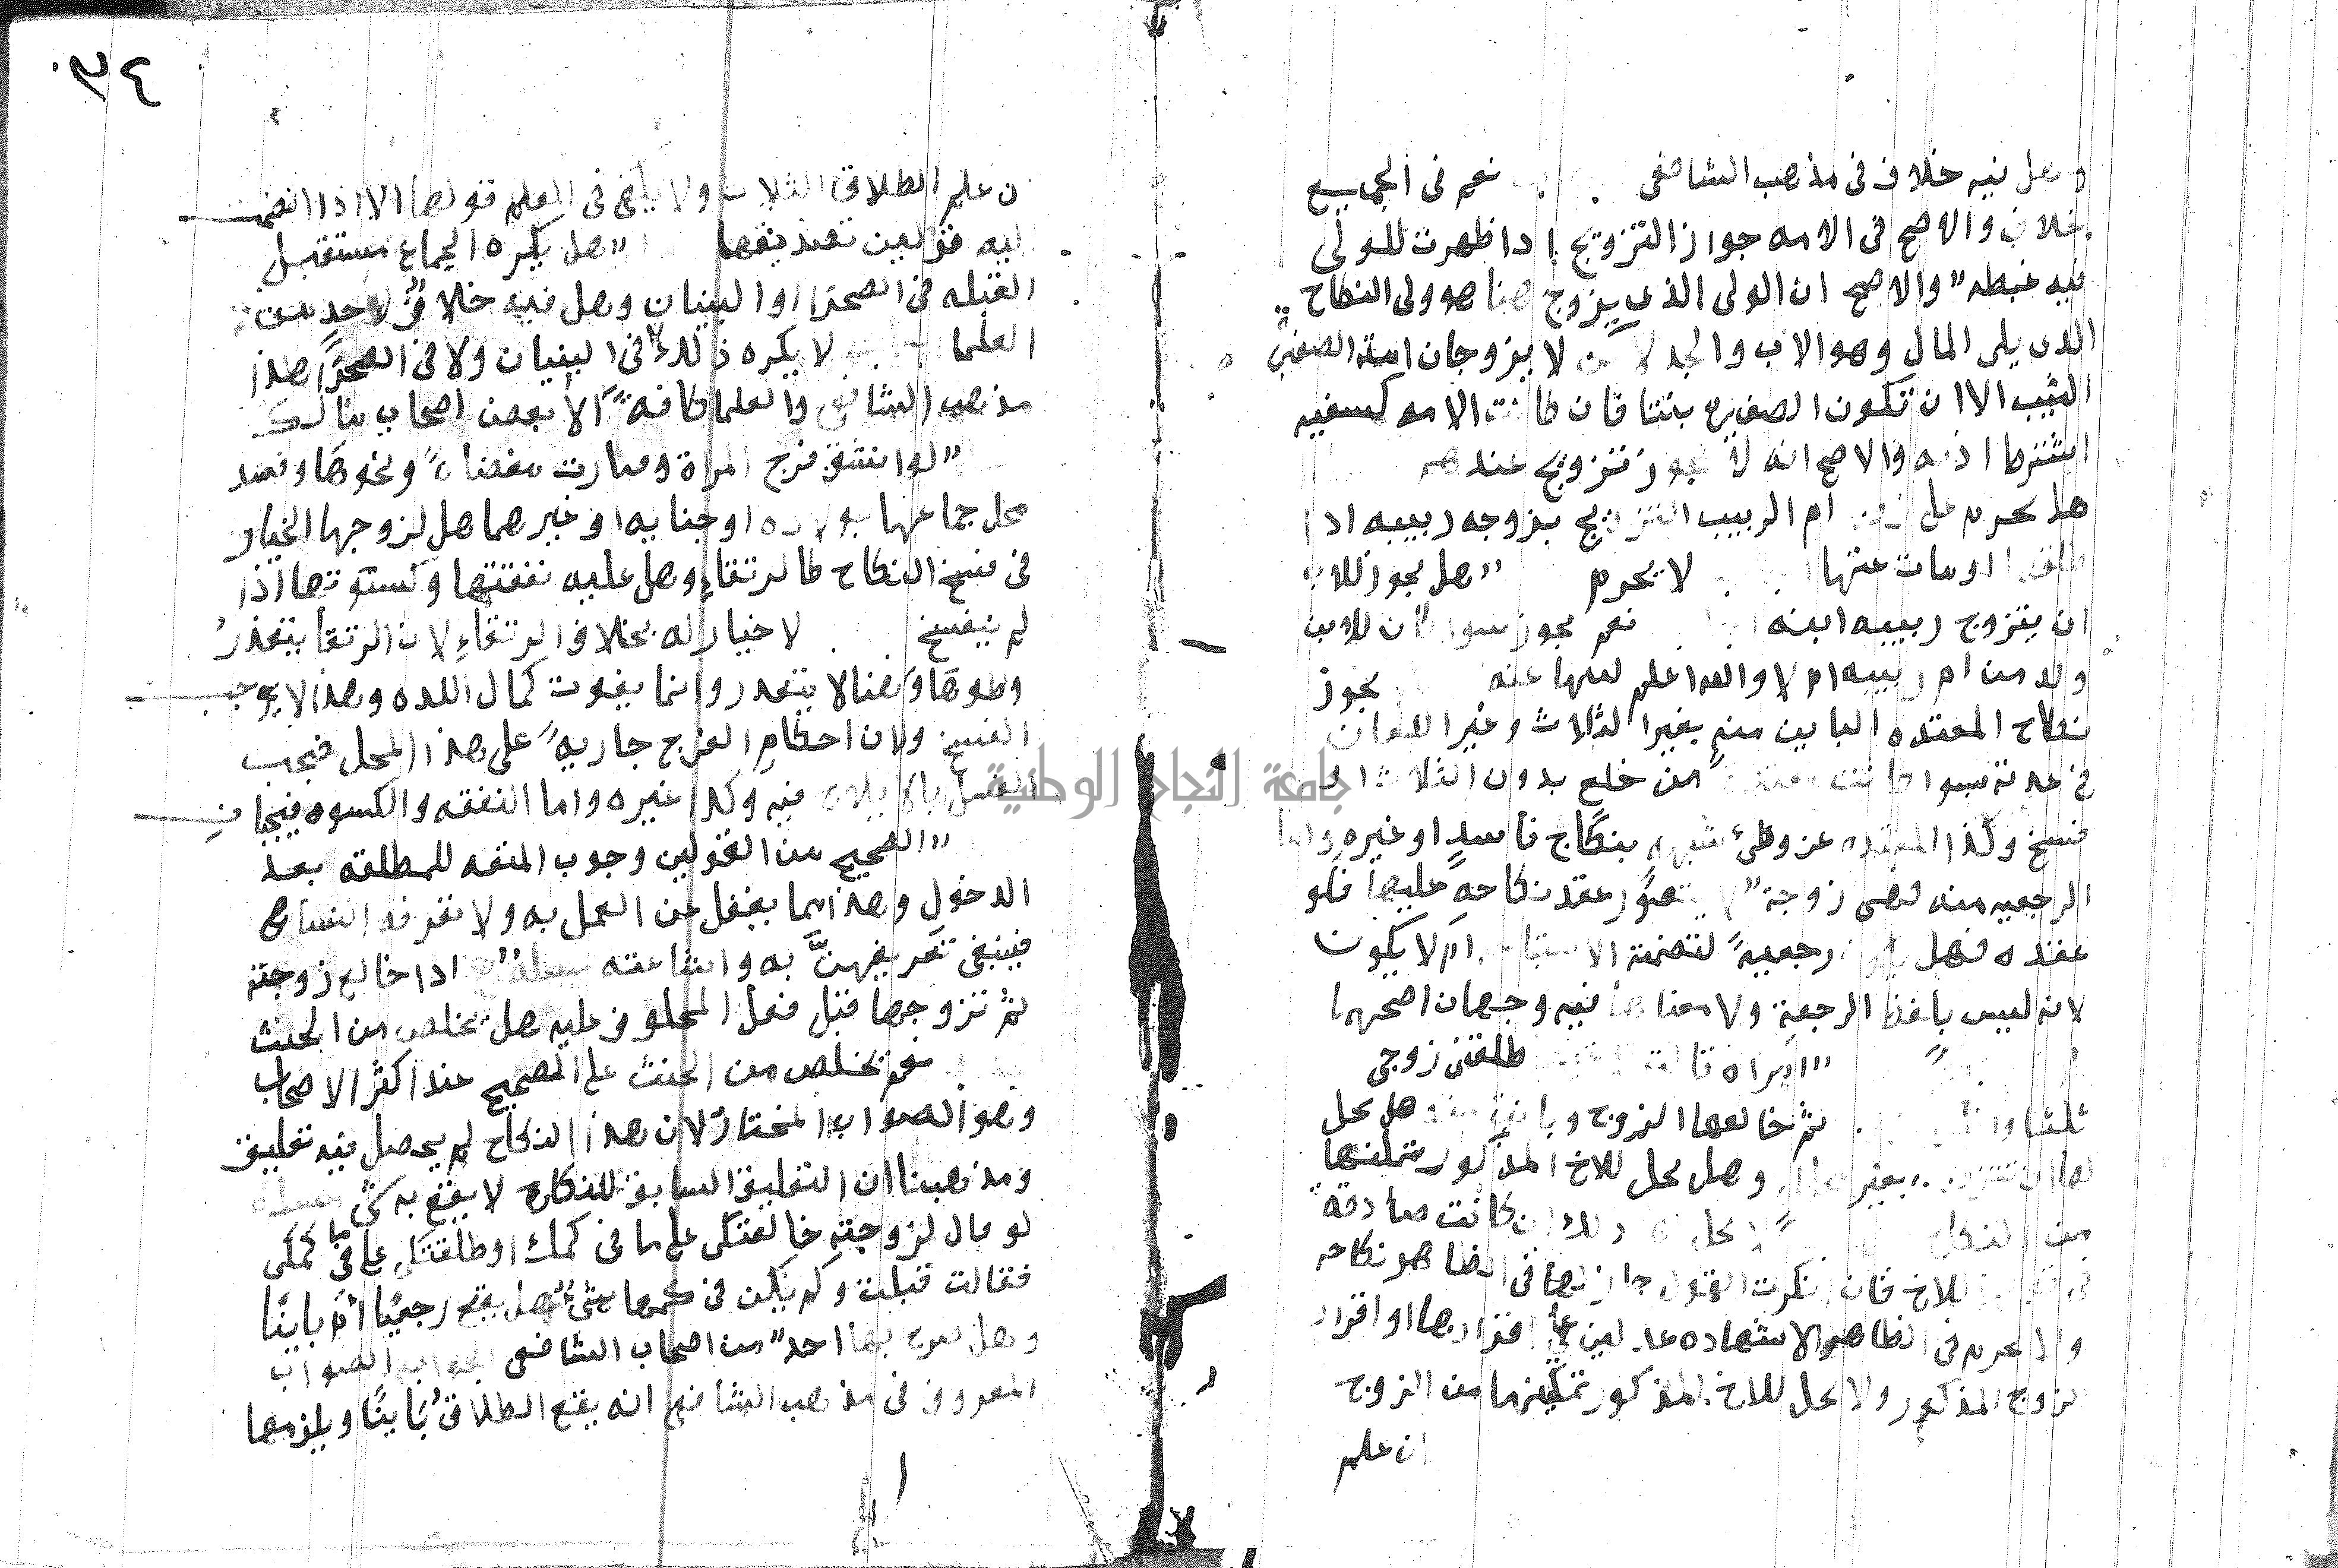 وهل فيه خلاف في مذهب الشافعي نعم في الجميع
خلاف والاصح في الامه جواز التزويج اذا ظهرت للولي
فيه غبطه والاصح ان الولي الذي يزوج هنا هو ولي النكاح
الذي يلي المال وهو الاب والجد لا يزوجان امة الصغير
الثيب الا ان تكون الصغيره بنتا فان كانت الامه لسفيه
اشترط اذنه والاصح انه لا يجوز تزويج عندهم
هل يحرم على ام الربيب التزويج بزوجه ربيبه اذا
او مات عنها لا يحرم هل يجوز للاب
ان يتزوج ربيبه ابنه نعم يجوز سوا كان للابن
ولد من ام ربيبه ام لا والله اعلم يجوز
نكاح المعتده الباين منه بغير الثلاث وغير اللعان
في عدته سوا كانت من خلع بدون الثلاث او
فسخ وكذا المعتده عن وطئ شبهه بنكاح فاسد او غيره واما
الرجعيه منه فهي زوجة يتصور عقد نكاحه عليها فلو
عقده فهل رجعيه لتضمنة ام لا يكون
لانه ليس بلفظ الرجعة ولا معناها فيه وجهان اصحهما
امراه قالت طلقني زوجي
ثلثا ثم خالعها الزوج هل يحل
لها ان تتزوج بغير وهل يحل للاخ المذكور
من النكاح لا يحل ذلك ان كانت صادقة
للاخ فان انكرت القول جاز لها في الظاهر نكاحه
ولا يحرم في الظاهر الا بشهاده عدلين على اقرارها او اقرار
الزوج المذكور ولا يحل للاخ المذكور تمكينها من الزوج
ان علم
٣٤٠
ن علم الطلاق الثلاث ولا يكفي في العلم قولها الا اذا انضمت
اليه قراين تصديقها هل يكره الجماع مستقبل
القبله في الصحرا او البنيان وهل فيه خلاف لاحد من
العلما لا يكره ذلك في البنيان ولا في الصحرا هذا
مذهب الشافعي والعلما كافة الا بعض اصحاب مالك
لو انشق فرج المراة وصارت مفضاة ونحوها وفسد
محل جماعها بولاده او جنايه او غيرهما هل لزوجها الخيار
في فسخ النكاح كالرتقاء وهل عليه نفقتها وكسوتها اذا
لم ينفسخ لا خيار له بخلاف الرتقاء لان الرتقا يتعذر
وطوها وهنا لا يتعذر وانما يفوت كمال اللذه وهذا لا يوجب
الفسخ ولان احكام الفرج جاريه على هذا المحل فيجب
الغسل بالايلاج فيه وكذا غيره واما النفقه والكسوه فيجبا ن
الصحيح من القولين وجوب المتعه للمطلقه بعد
الدخول وهذا مما يغفل عن العمل به ولا تعرفه النسا
فينبغي تعريفهن به واشاعته اذا خالع زوجته
ثم تزوجها قبل فعل المحلوف عليه هل يخلص من الحنث
نعم يخلص من الحنث على الصحيح عند اكثر الاصحاب
وهو الصواب المختار لان هذا النكاح لم يحصل فيه تعليق
ومذهبنا ان التعليق السابق للنكاح لا يقع به شي
لو قال لزوجته خالعتك على ما في كمك او طلقتك على ما في كمك
فقالت قبلت ولم يكن في كمها شي هل يقع رجعيا ام باينا
وهل صرح بها احد من اصحاب الشافعي الجواب الصواب
المعروف في مذهب الشافعي انه يقع الطلاق باينا ويلزمها
جامعة النجاح الوطنية